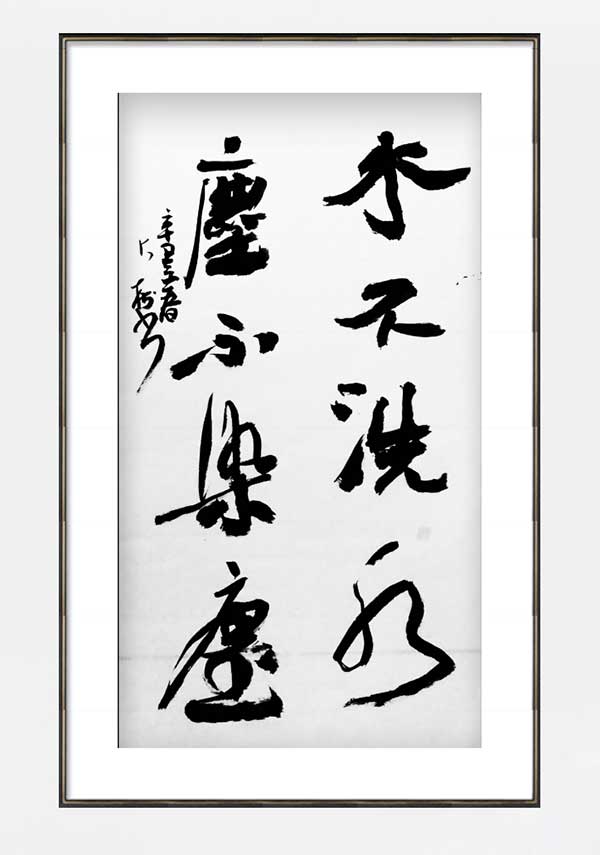 水不洗水
塵不染塵
辛丑春